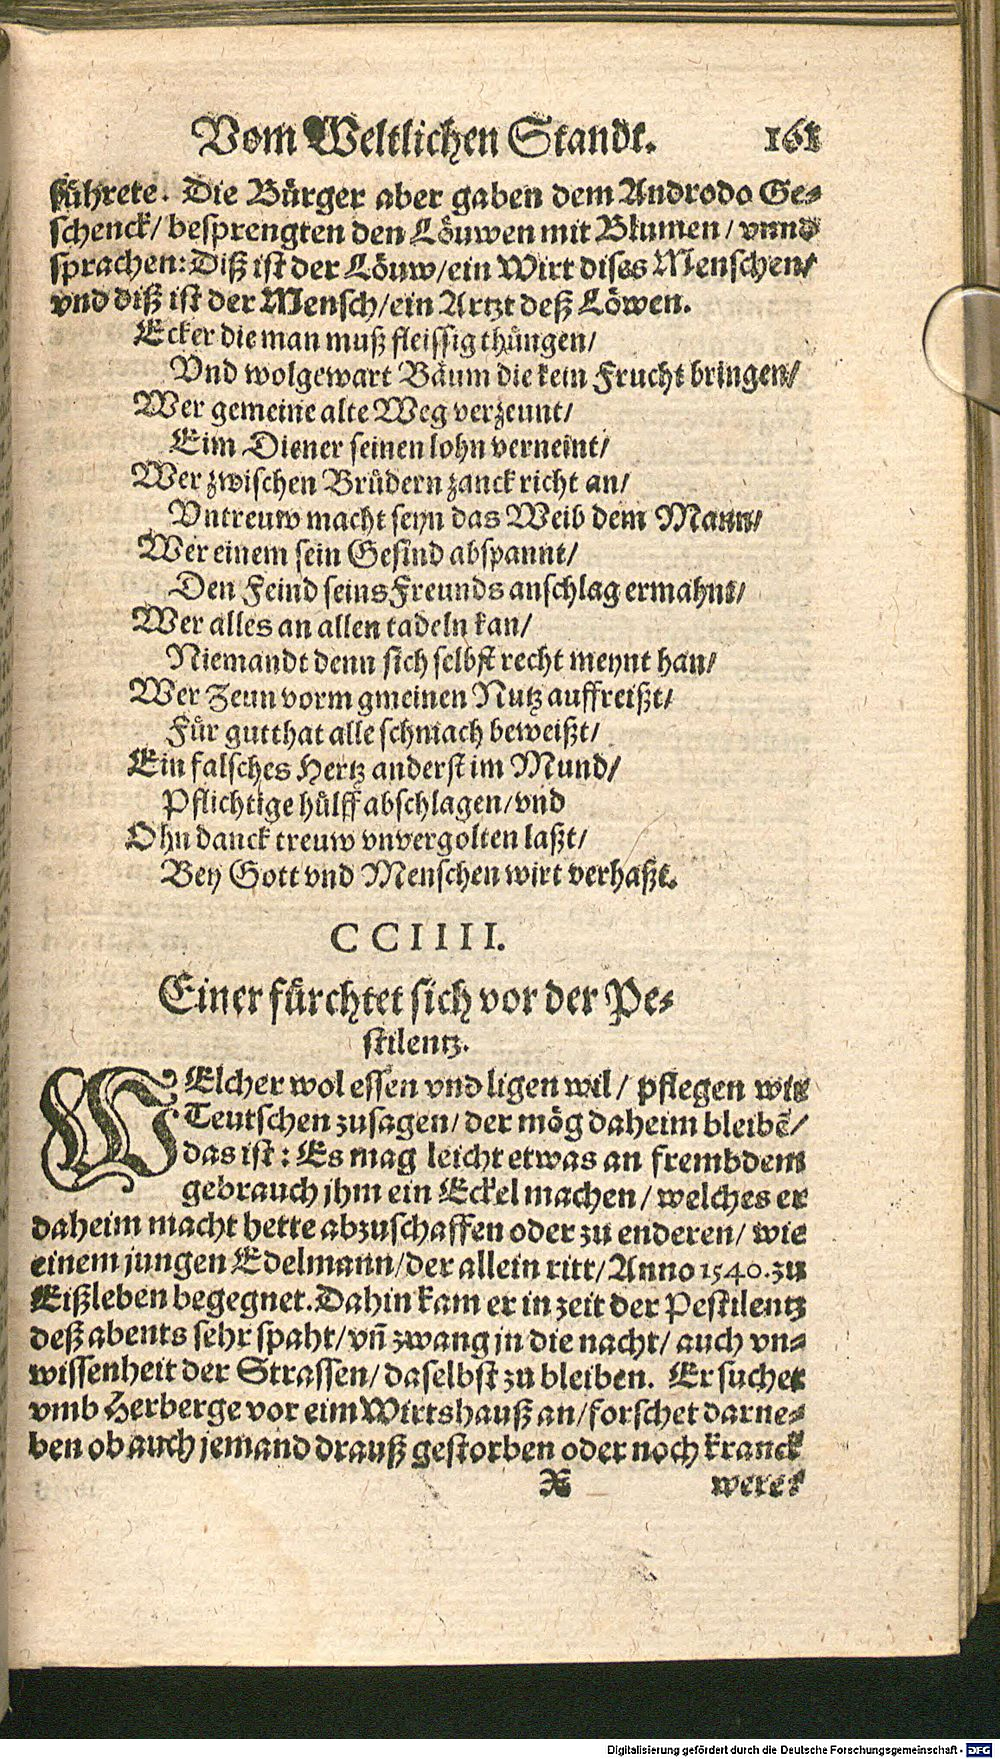 Vom Weltlichen Standt. 161
führete. Die Bürger aber gaben dem Androdo Ge-
schenck/ besprengten den Löuwen mit Blumen/ vnnd
sprachen: Diß ist der Löuw/ ein Wirt dises Menschen/
vnd diß ist der Mensch/ ein Artzt deß Löwen.
Ecker die man muß fleissig thüngen/
Vnd wolgewart Bäum die kein Frucht bringen/
Wer gemeine alte Weg verzeunt/
Eim Diener seinen lohn verneint/
Wer zwischen Brüdern zanck richt an/
Vntreuw macht seyn das Weib dem Mann/
Wer einem sein Gesind abspannt/
Den Feind seins Freunds anschlag ermahnt/
Wer alles an allen tadeln kan/
Niemandt denn sich selbst recht meynt han/
Wer Zeun vorm gmeinen Nutz auffreißt/
Für gutthat alle schmach beweißt/
Ein falsches Hertz anderst im Mund/
Pflichtige hülff abschlagen/ vnd
Ohn danck treuw vnvergolten laßt/
Bey Gott vnd Menschen wirt verhaßt.
CCIIII.
Einer fürchtet sich vor der Pe-
stilentz.
WElcher wol essen vnd ligen wil/ pflegen wir
Teutschen zusagen/ der mög daheim bleibẽ/
das ist: Es mag leicht etwas an frembdem
gebrauch jhm ein Eckel machen/ welches er
daheim macht hette abzuschaffen oder zu enderen/ wie
einem jungen Edelmann/ der allein ritt/ Anno 1540. zu
Eißleben begegnet. Dahin kam er in zeit der Pestilentz
deß abents sehr spaht/ vñ zwang jn die nacht/ auch vn-
wissenheit der Strassen/ daselbst zu bleiben. Er suchet
vmb Herberge vor eim Wirtshauß an/ forschet darne-
ben ob auch jemand drauß gestorben oder noch kranck
X were?
Digitalisierung gefördert durch die Deutsche Forschungsgemeinschaft - DFG